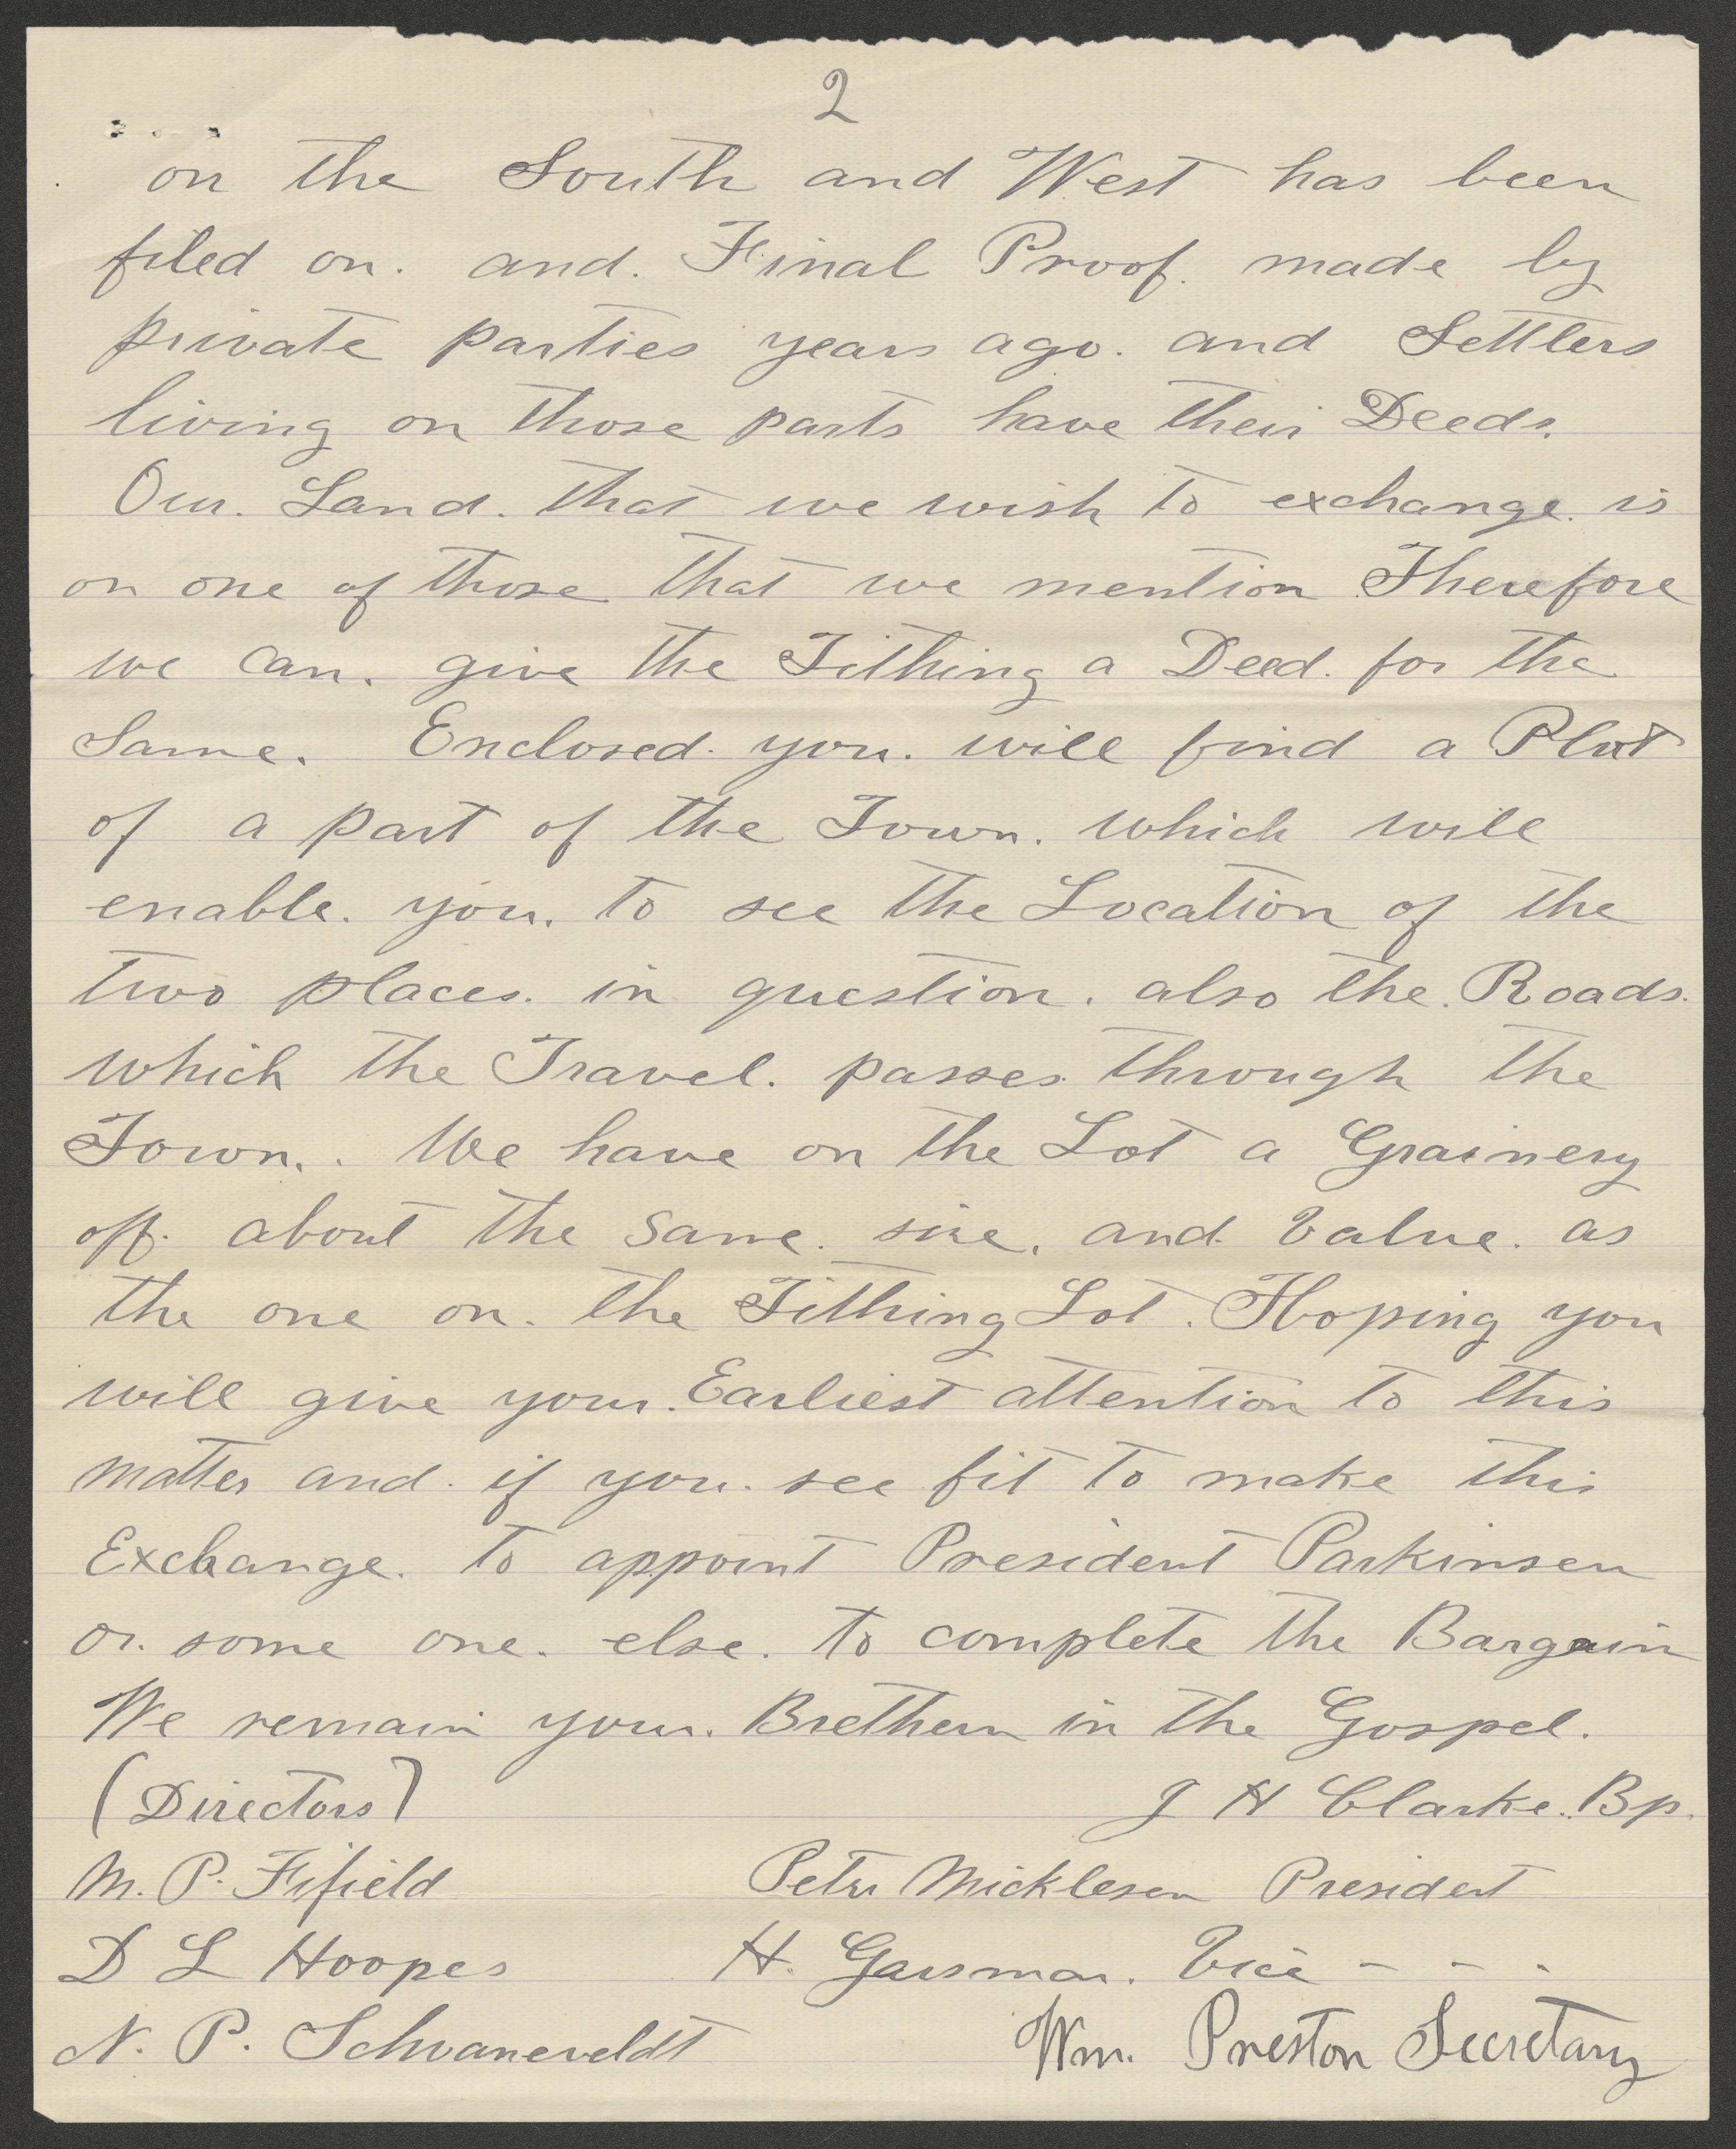 2
on the South and West has been
filed on. and. Final Proof. made by
private parties years ago. and Settlers
living on those parts have their Deeds.
Our. Land. that we wish to exchange. is
on one of those that we mention Therefore
we can. give the Tithing a Deed. for the
Same. Enclosed. you. will find a Plat
of a part of the Town. which will
enable. you. to see the Location of the
two places. in question. also the. Roads.
which the Travel. passes through the
Town.. We have on the Lot a Grainery
off. about the same. size. and Value. as
the one on. the Tithing Lot. Hoping you
will give your. Earliest attention to this
matter and. if you. see fit to make this
Exchange. to appoint President Parkinsen
or. some one. else. to complete the Bargain
We remain your. Brethern in the Gospel.
(Directors) J H Clarke. Bp.
M. P. Fifield Peter Micklesen President
D L Hoopes H. Gassman. Vice - - -
N. P. Schvaneveldt Wm. Preston Secretary